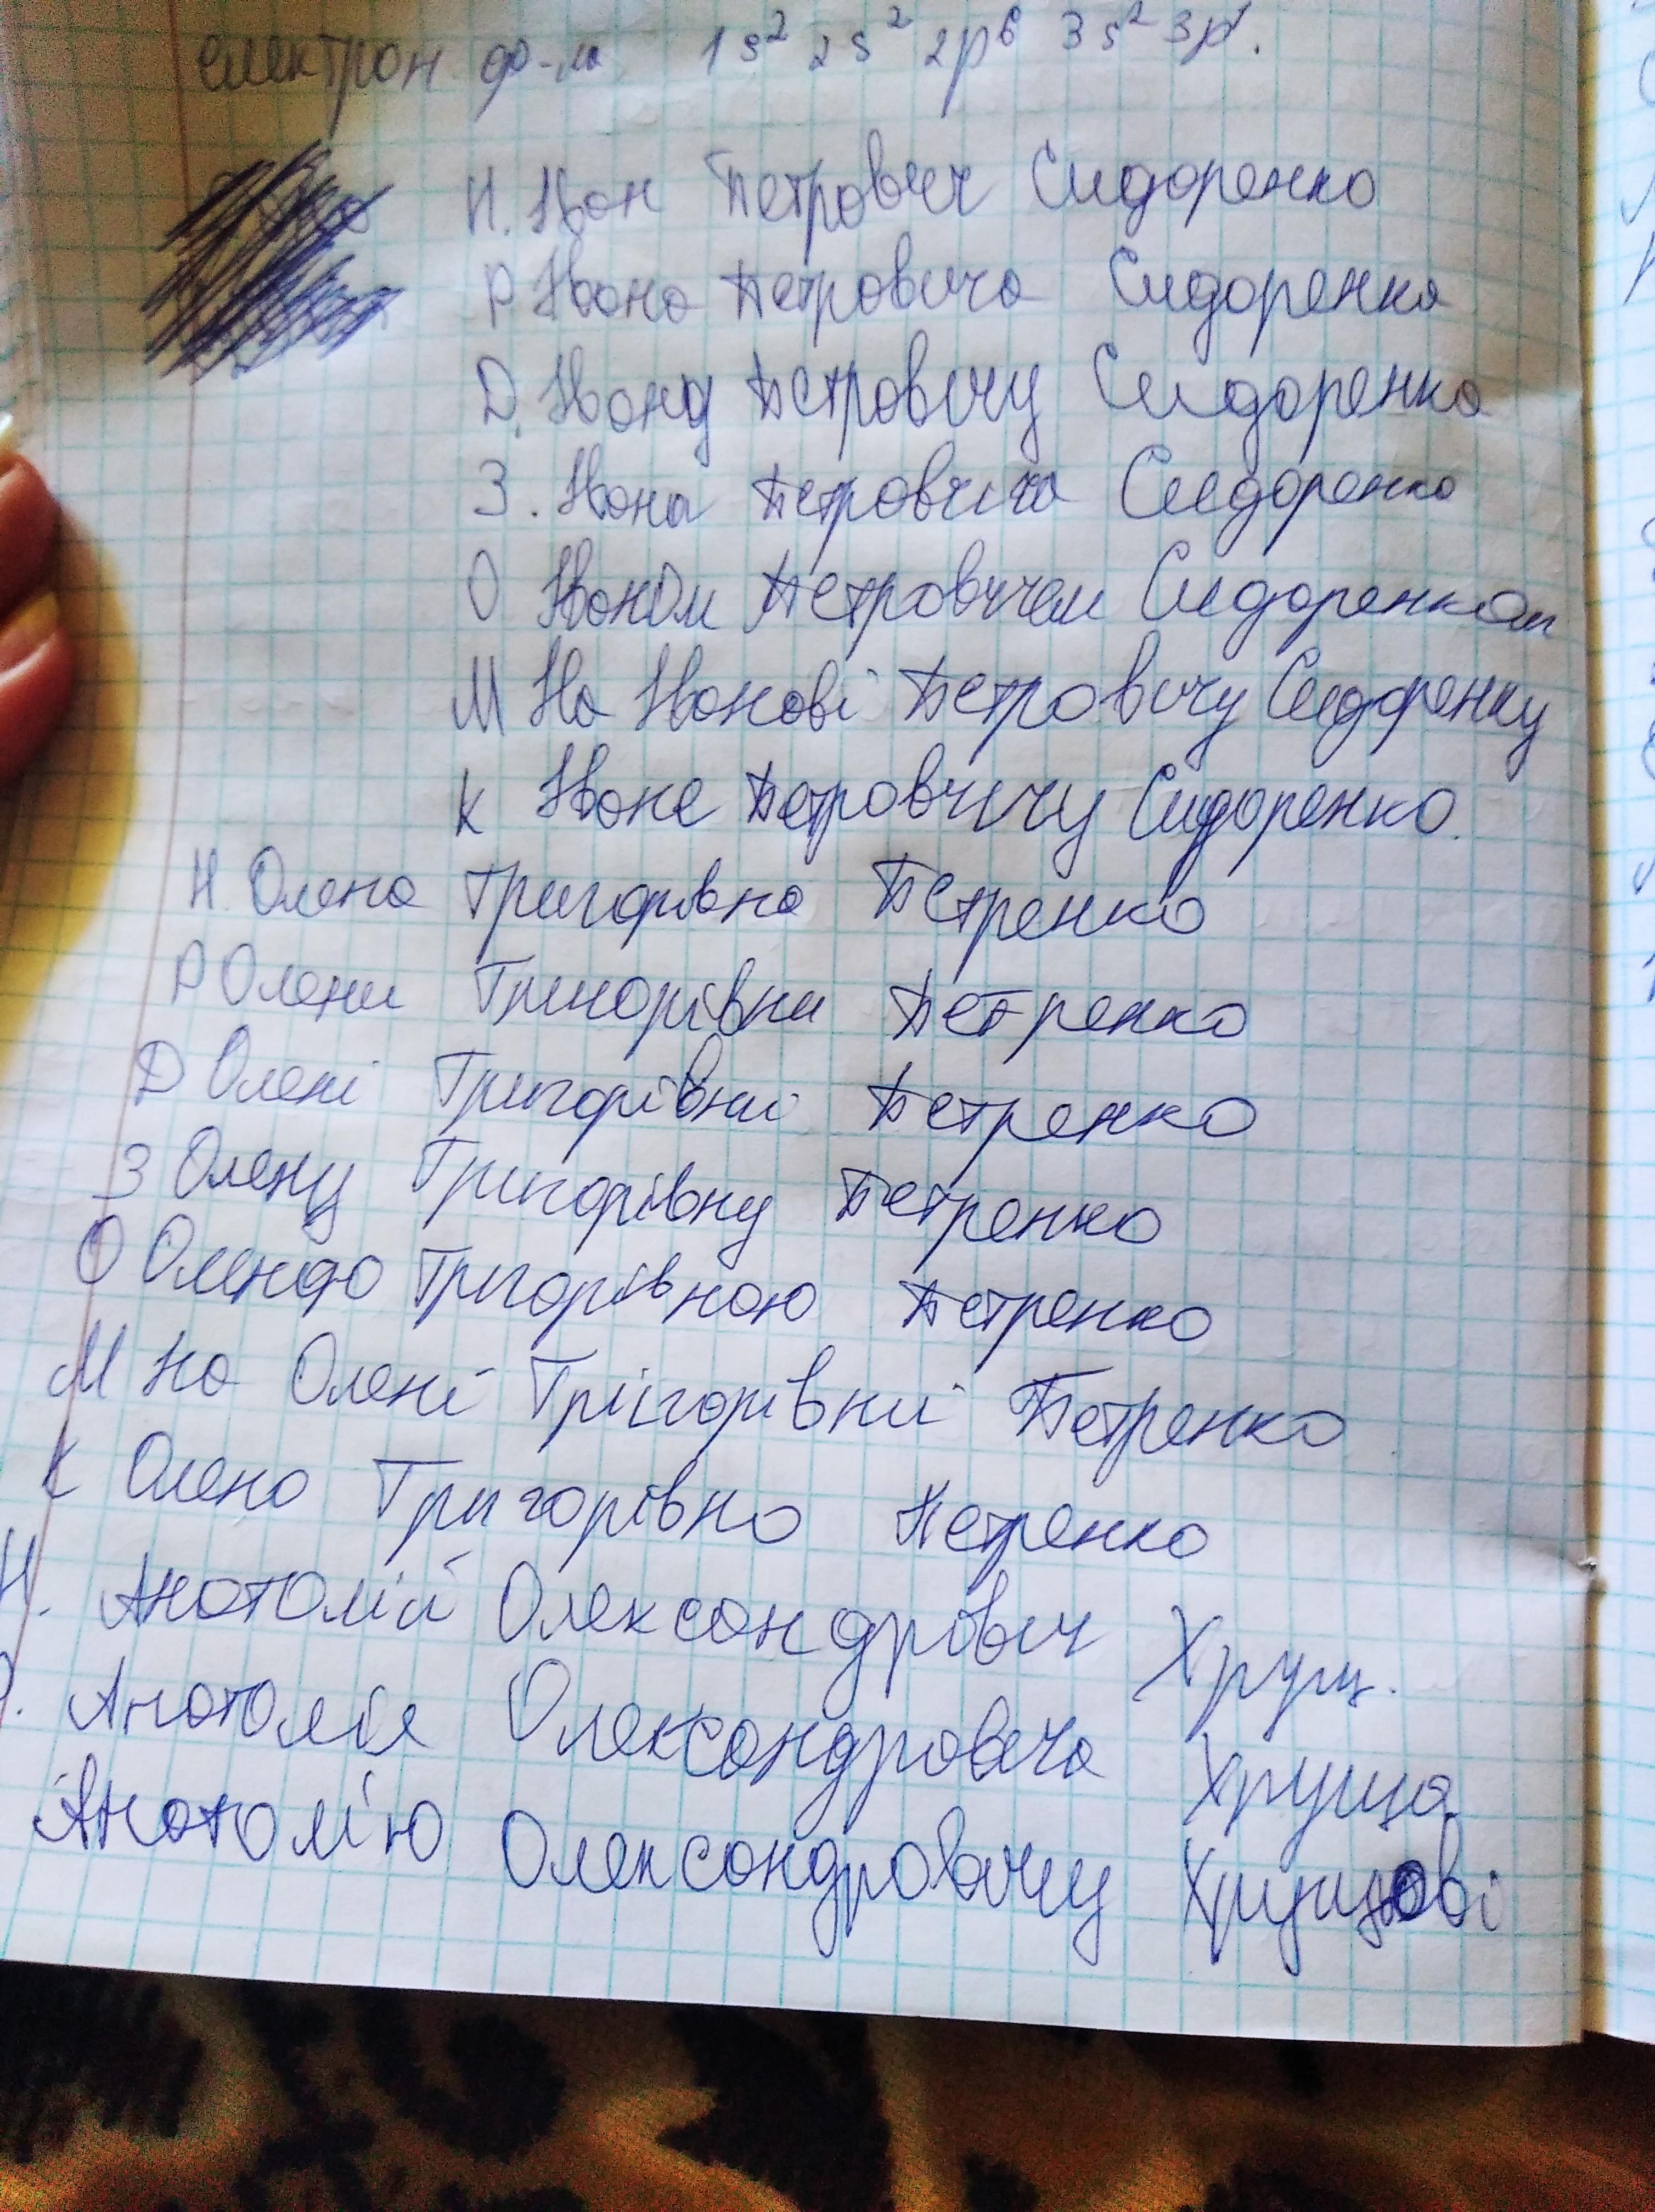 електрон фо-ла 1s² 2s² 2p⁶ 3s² 3p¹.
Н. Іван Петрович Сидоренко
Р Івана Петровича Сидоренка
Д. Івану Петровичу Сидоренко
З. Івана Петровича Сидоренко
О Іваном Петровичем Сидоренком
М На Іванові Петровичу Сидоренку
К Іване Петровичу Сидоренко.
Н. Олена Григорівна Петренко
Р Олени Григорівни Петренко
Д Олені Григорівні Петренко
З Олену Григорівну Петренко
О Оленою Григорівною Петренко
М на Олені Григорівні Петренко
К Олено Григорівно Петренко
Н. Анатолій Олександрович Хрущ.
Р. Анатолія Олександровича Хруща
Анатолію Олександровичу Хрущові